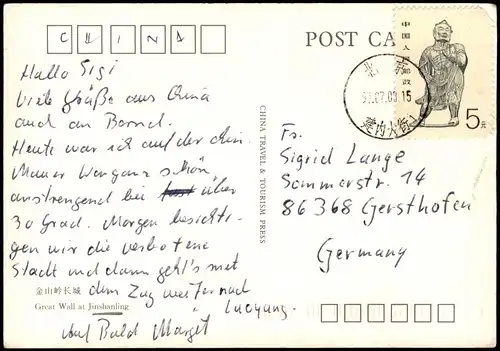 CHINA
POST CA
中国人民邮政
5元
北京
93.07.03.15
建内大街
Hallo Sigi
Viele Grüße aus China
auch an Bernd.
Heute war ich auf der chin.
Mauer. War ganz schön
anstrengend bei fast über
30 Grad. Morgen besichti-
gen wir die verbotene
Stadt und dann geht's mit
dem Zug weiter nach
Luoyang.
Auf Bald Margit
金山岭长城
Great Wall at Jinshanling
CHINA TRAVEL & TOURISM PRESS
Fr.
Sigrid Lange
Sommerstr. 14
86368 Gersthofen
Germany